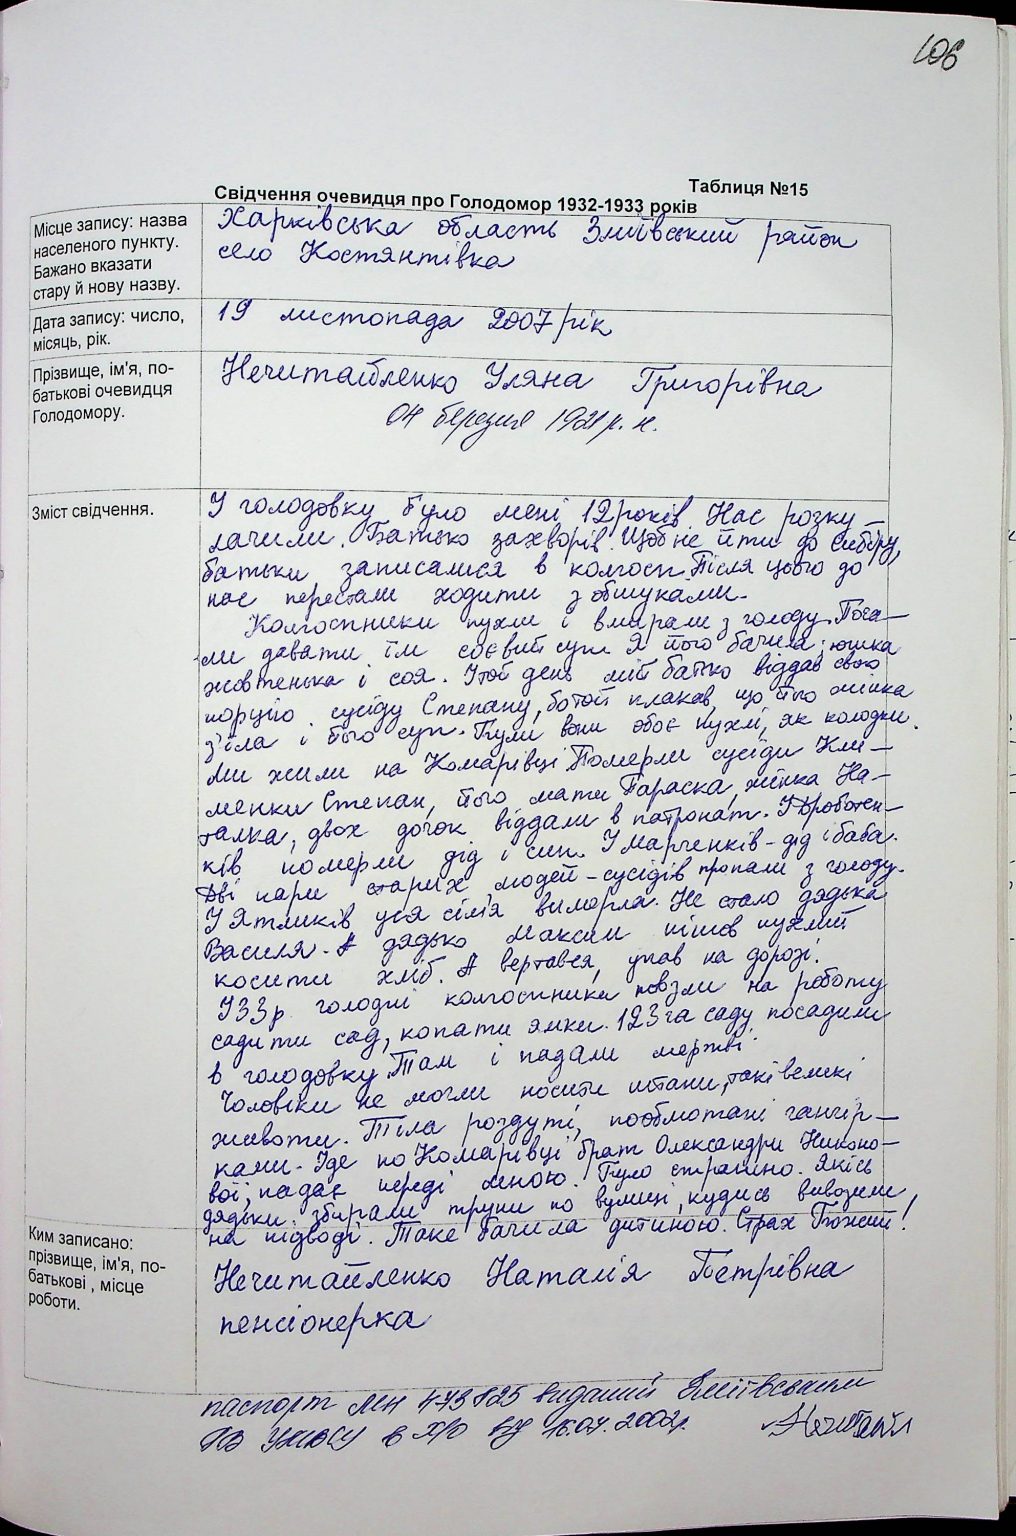 106
Таблиця №15
Свідчення очевидця про Голодомор 1932-1933 років
Місце запису: назва
населеного пункту.
Бажано вказати
стару й нову назву.
Харківська область Зміївський район
село Костянтівка
Дата запису: число,
місяць, рік.
19 листопада 2007 рік
Прізвище, ім'я, по-
батькові очевидця
Голодомору.
Нечитайленко Уляна Григорівна
04 березня 1921 р. н.
Зміст свідчення.
У голодовку було мені 12 років. Нас розку-
лачили. Батько захворів. Щоб не йти до Сибіру,
батьки записалися в колгосп. Після цього до
нас перестали ходити з обшуками.
Колгоспники пухли і вмирали з голоду. Поча-
ли давати їм соєвий суп. Я його бачила: юшка
жовтенька і соя. У той день мій батько віддав свою
порцію сусіду Степану, бо той плакав, що його жінка
з'їла і його суп. Були вони обоє пухлі, як колодки.
Ми жили на Комарівці. Померли сусіди Кли-
менки Степан, його мати Параска, жінка На-
талка, двох дочок віддали в патронат. У Дроботен-
ків померли дід і син. У Марченків - дід і баба.
Дві пари старих людей - сусідів пропали з голоду.
У Ятликів уся сім'я вимерла. Не стало дядька
Василя. А дядько Максим пішов пухлий
косити хліб. А вертався, упав на дорозі.
У 33 р. голодні колгоспники повзли на роботу
садити сад, копати ямки. 123 га саду посадили
в голодовку. Там і падали мертві.
Чоловіки не могли носити штани, такі великі
животи. Тіла роздуті, пообмотані ганчір-
ками. Йде по Комарівці брат Олександри Никоно-
вої, падає переді мною. Було страшно. Якісь
дядьки збирали трупи по вулиці, кудись вивозили
на підводі. Таке бачила дитиною. Страх Божий!
Ким записано:
прізвище, ім'я, по-
батькові , місце
роботи.
Нечитайленко Наталія Петрівна
пенсіонерка
паспорт МН 473825 виданий Зміївським
РВ УМВСУ в Х/о від 16.07.2002р.
Нечитайл